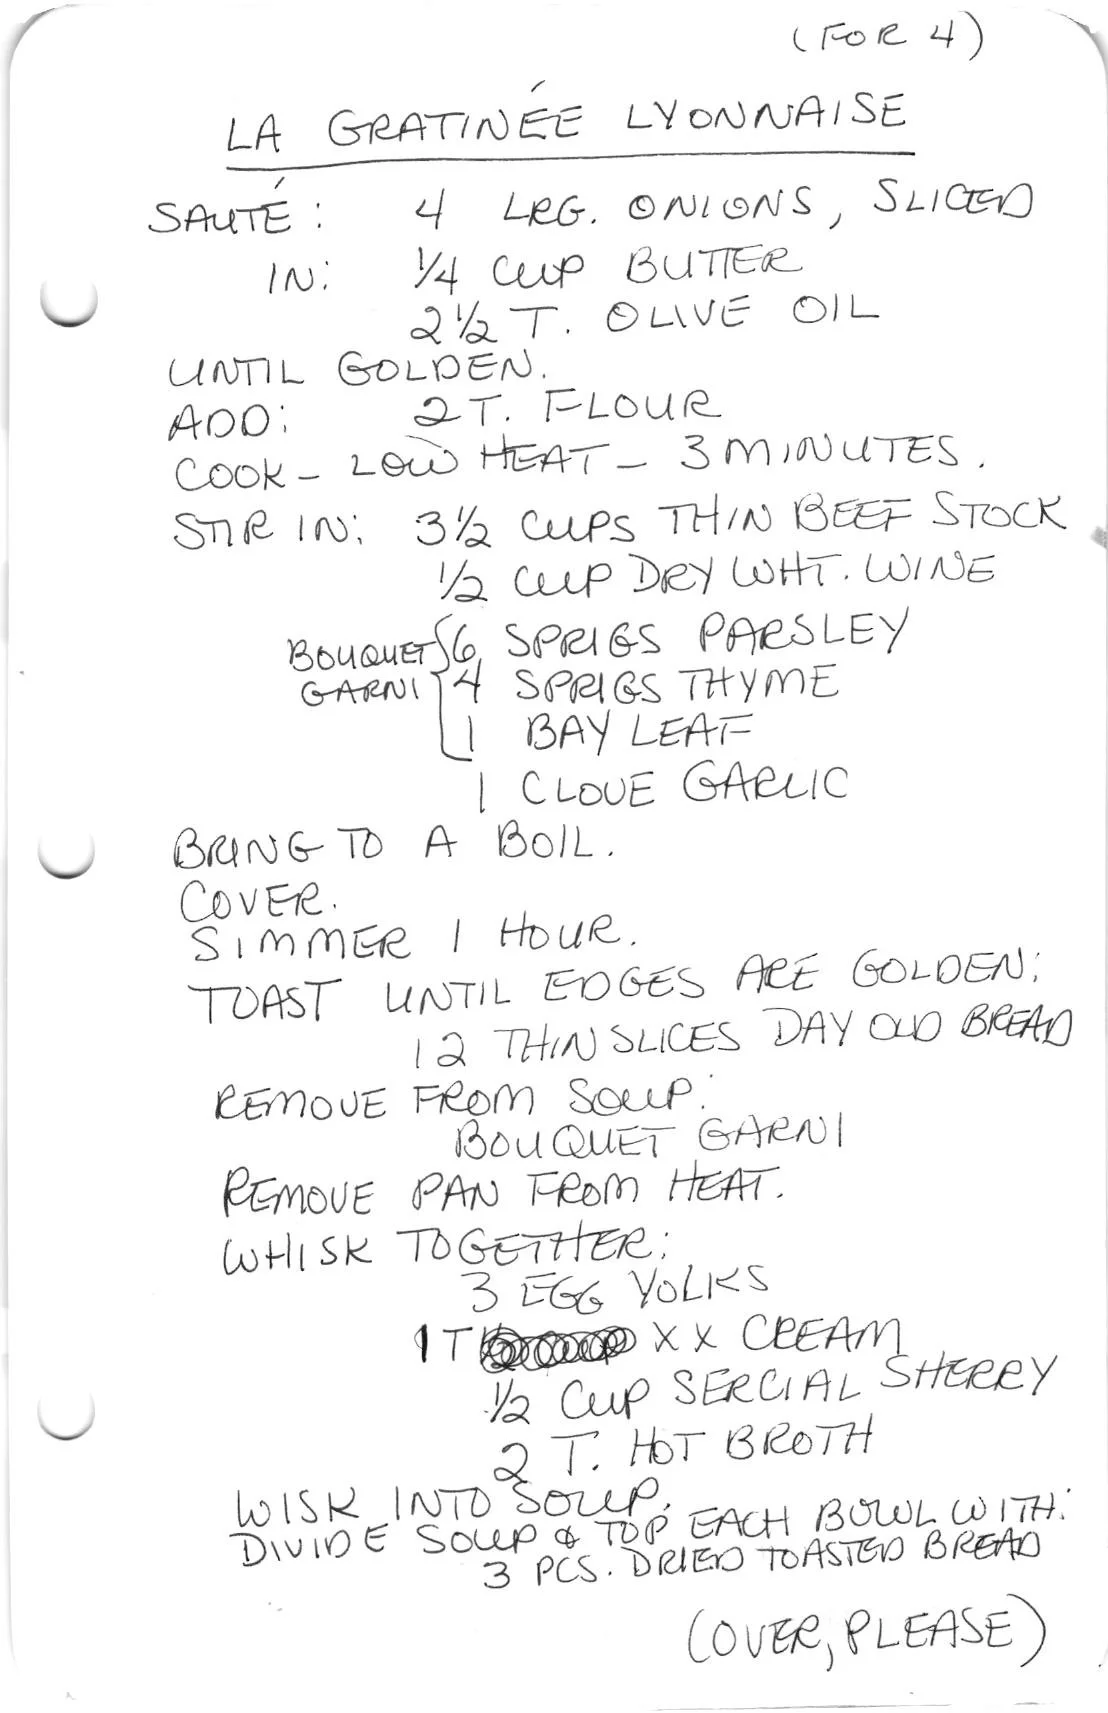 (FOR 4)
LA GRATINÉE LYONNAISE
SAUTÉ: 4 LRG. ONIONS, SLICED
IN: 1/4 CUP BUTTER
2 1/2 T. OLIVE OIL
UNTIL GOLDEN.
ADD: 2 T. FLOUR
COOK - LOW HEAT - 3 MINUTES.
STIR IN: 3 1/2 CUPS THIN BEEF STOCK
1/2 CUP DRY WHT. WINE
BOUQUET { 6 SPRIGS PARSLEY
GARNI { 4 SPRIGS THYME
1 BAY LEAF
1 CLOVE GARLIC
BRING TO A BOIL.
COVER.
SIMMER 1 HOUR.
TOAST UNTIL EDGES ARE GOLDEN:
12 THIN SLICES DAY OLD BREAD
REMOVE FROM SOUP:
BOUQUET GARNI
REMOVE PAN FROM HEAT.
WHISK TOGETHER:
3 EGG YOLKS
1 T XX CREAM
1/2 CUP SERCIAL SHERRY
2 T. HOT BROTH
WISK INTO SOUP.
DIVIDE SOUP & TOP EACH BOWL WITH:
3 PCS. DRIED TOASTED BREAD
(OVER, PLEASE)